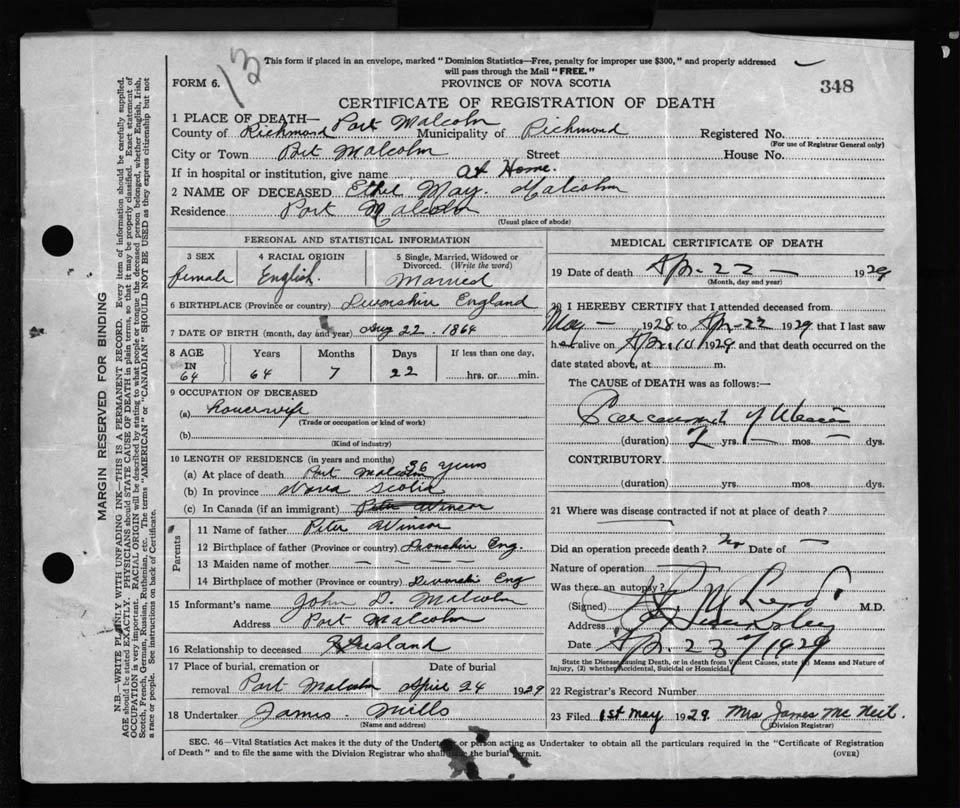 This form if placed in an envelope, marked "Dominion Statistics—Free, penalty for improper use $300," and properly addressed
will pass through the Mail "FREE."
FORM 6.
13
PROVINCE OF NOVA SCOTIA
348
CERTIFICATE OF REGISTRATION OF DEATH
1 PLACE OF DEATH— Port Malcolm
County of Richmond Municipality of Richmond Registered No.
(For use of Registrar General only)
City or Town Port Malcolm Street House No.
If in hospital or institution, give name at Home.
2 NAME OF DECEASED Ethel May. Malcolm
Residence Port Malcolm
(Usual place of abode)
PERSONAL AND STATISTICAL INFORMATION
3 SEX 4 RACIAL ORIGIN 5 Single, Married, Widowed or
Divorced. (Write the word)
female English. Married
6 BIRTHPLACE (Province or country) Devonshire England
7 DATE OF BIRTH (month, day and year) Aug 22. 1864
8 AGE Years Months Days If less than one day,
IN
64 64 7 22 hrs. or min.
9 OCCUPATION OF DECEASED
(a) Housewife
(Trade or occupation or kind of work)
(b)
(Kind of industry)
10 LENGTH OF RESIDENCE (in years and months)
(a) At place of death Port Malcolm 36 years
(b) In province Nova Scotia
(c) In Canada (if an immigrant) Peter Winsor
Parents
11 Name of father Peter Winsor
12 Birthplace of father (Province or country) Devonshire Eng.
13 Maiden name of mother — — — — —
14 Birthplace of mother (Province or country) Devonshire Eng
15 Informant's name John D. Malcolm
Address Port Malcolm
16 Relationship to deceased Husband
17 Place of burial, cremation or Date of burial
removal Port Malcolm April 24 1929
18 Undertaker James. Mills
(Name and address)
MEDICAL CERTIFICATE OF DEATH
19 Date of death Apr. 22 — 1929
(Month, day and year)
20 I HEREBY CERTIFY that I attended deceased from
May — 1928 to Apr-22 1929 that I last saw
her alive on Apr. 10 1929 and that death occurred on the
date stated above, at m.
The CAUSE of DEATH was as follows:—
of
(duration) 2 yrs. — mos. — dys.
CONTRIBUTORY
(duration) yrs. mos. dys.
21 Where was disease contracted if not at place of death?
Did an operation precede death? No Date of —
Nature of operation
Was there an autopsy?
(Signed) M.D.
Address
Date Apr. 23 1929
State the Disease causing Death, or in death from Violent Causes, state (1) Means and Nature of
Injury, (2) whether Accidental, Suicidal or Homicidal.
22 Registrar's Record Number
23 Filed 1st May 1929. Mrs James Mc Neil.
(Division Registrar)
SEC. 46—Vital Statistics Act makes it the duty of the Undertaker or person acting as Undertaker to obtain all the particulars required in the "Certificate of Registration
of Death" and to file the same with the Division Registrar who shall issue the burial permit. (OVER)
MARGIN RESERVED FOR BINDING
N.B.—WRITE PLAINLY, WITH UNFADING INK—THIS IS A PERMANENT RECORD. Every item of information should be carefully supplied.
AGE should be stated EXACTLY. PHYSICIANS should STATE CAUSE OF DEATH in plain terms, so that it may be properly classified. Exact statement of
OCCUPATION is very important. RACIAL ORIGIN will be described by stating to what people or tongue the deceased person belonged, whether English, Irish,
Scotch, French, German, Russian, Ruthenian, etc. The terms "AMERICAN" or "CANADIAN" SHOULD NOT BE USED as they express citizenship but not
a race or people. See instructions on back of Certificate.